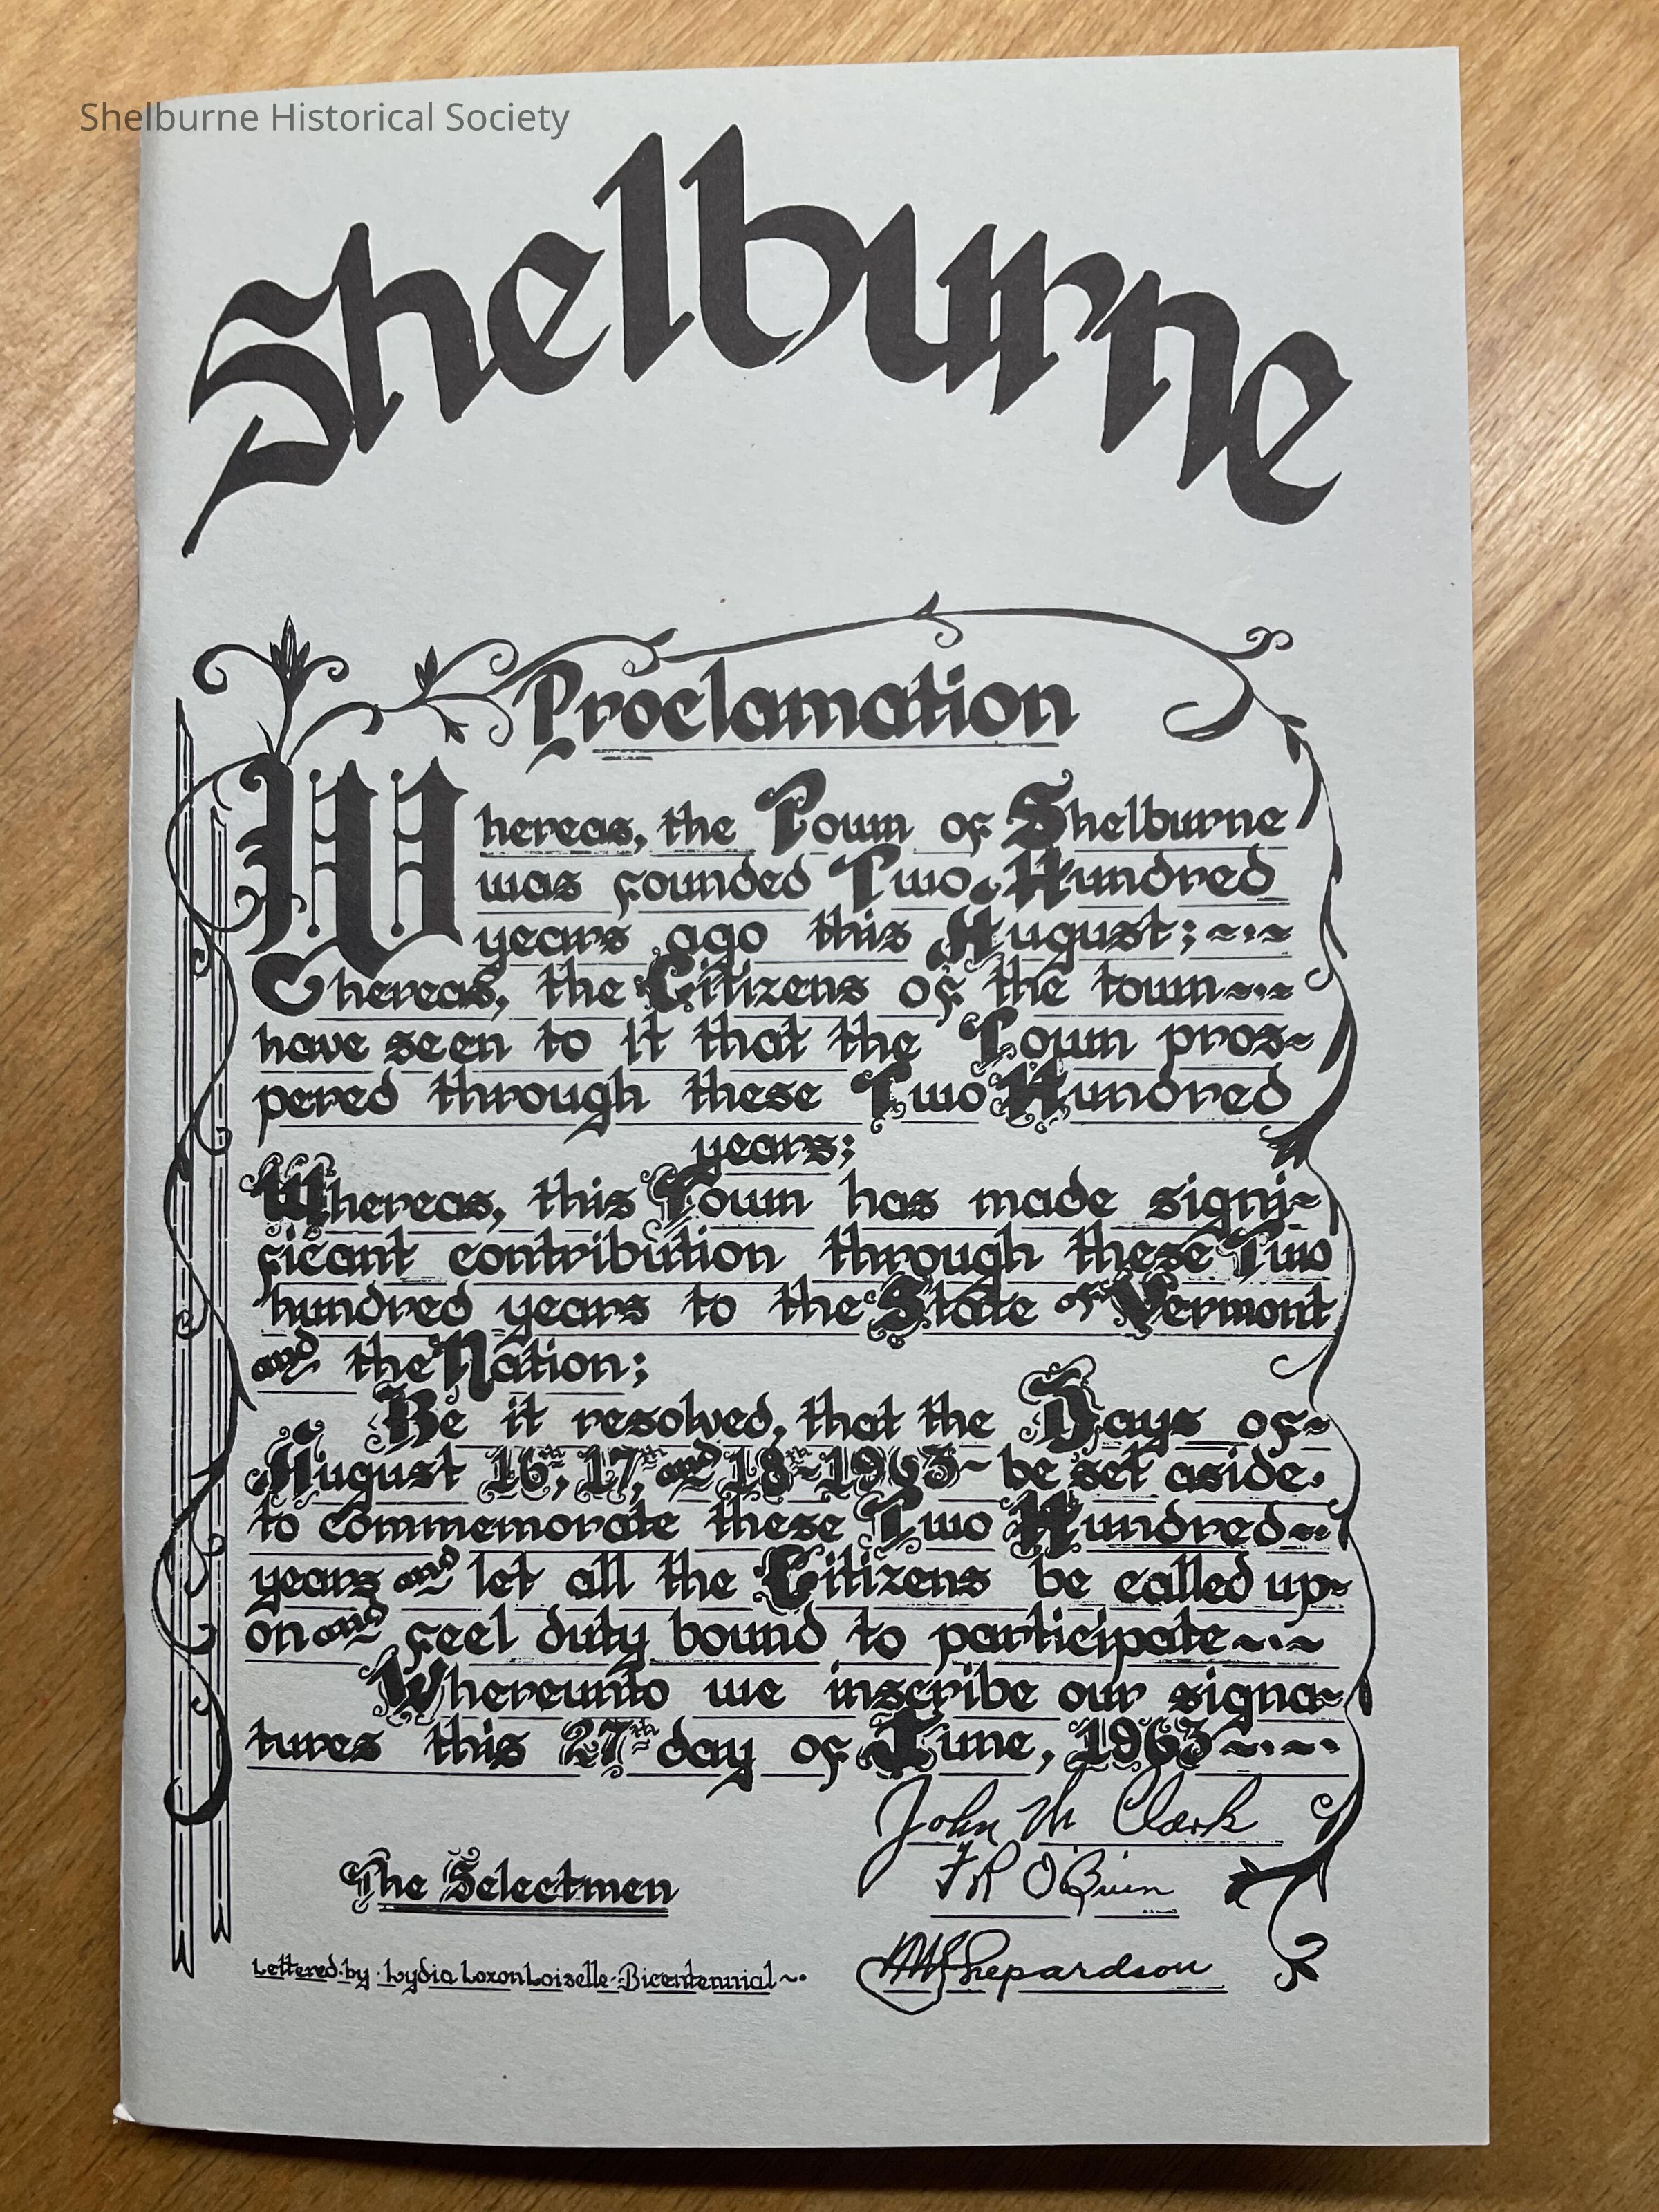 Shelburne Historical Society
Shelburne
Proclamation
Whereas, the Town of Shelburne
was founded Two Hundred
years ago this August; ~·~
Whereas, the Citizens of the town~·~
have seen to it that the Town pros~
pered through these Two Hundred
years;
Whereas, this Town has made signi~
ficant contribution through these Two
hundred years to the State of Vermont
and the Nation;
Be it resolved, that the Days of~
August 16th, 17th, and 18th~1963~ be set aside.
to commemorate these Two Hundred~~
years and let all the Citizens be called up~
on and feel duty bound to participate~·~
Whereunto we inscribe our signa~
tures this 27th day of June, 1963~·~·
John M Clark
The Selectmen
F R O'Brien
Shepardson
Lettered·by·Lydia Loxon Loiselle·Bicentennial~·